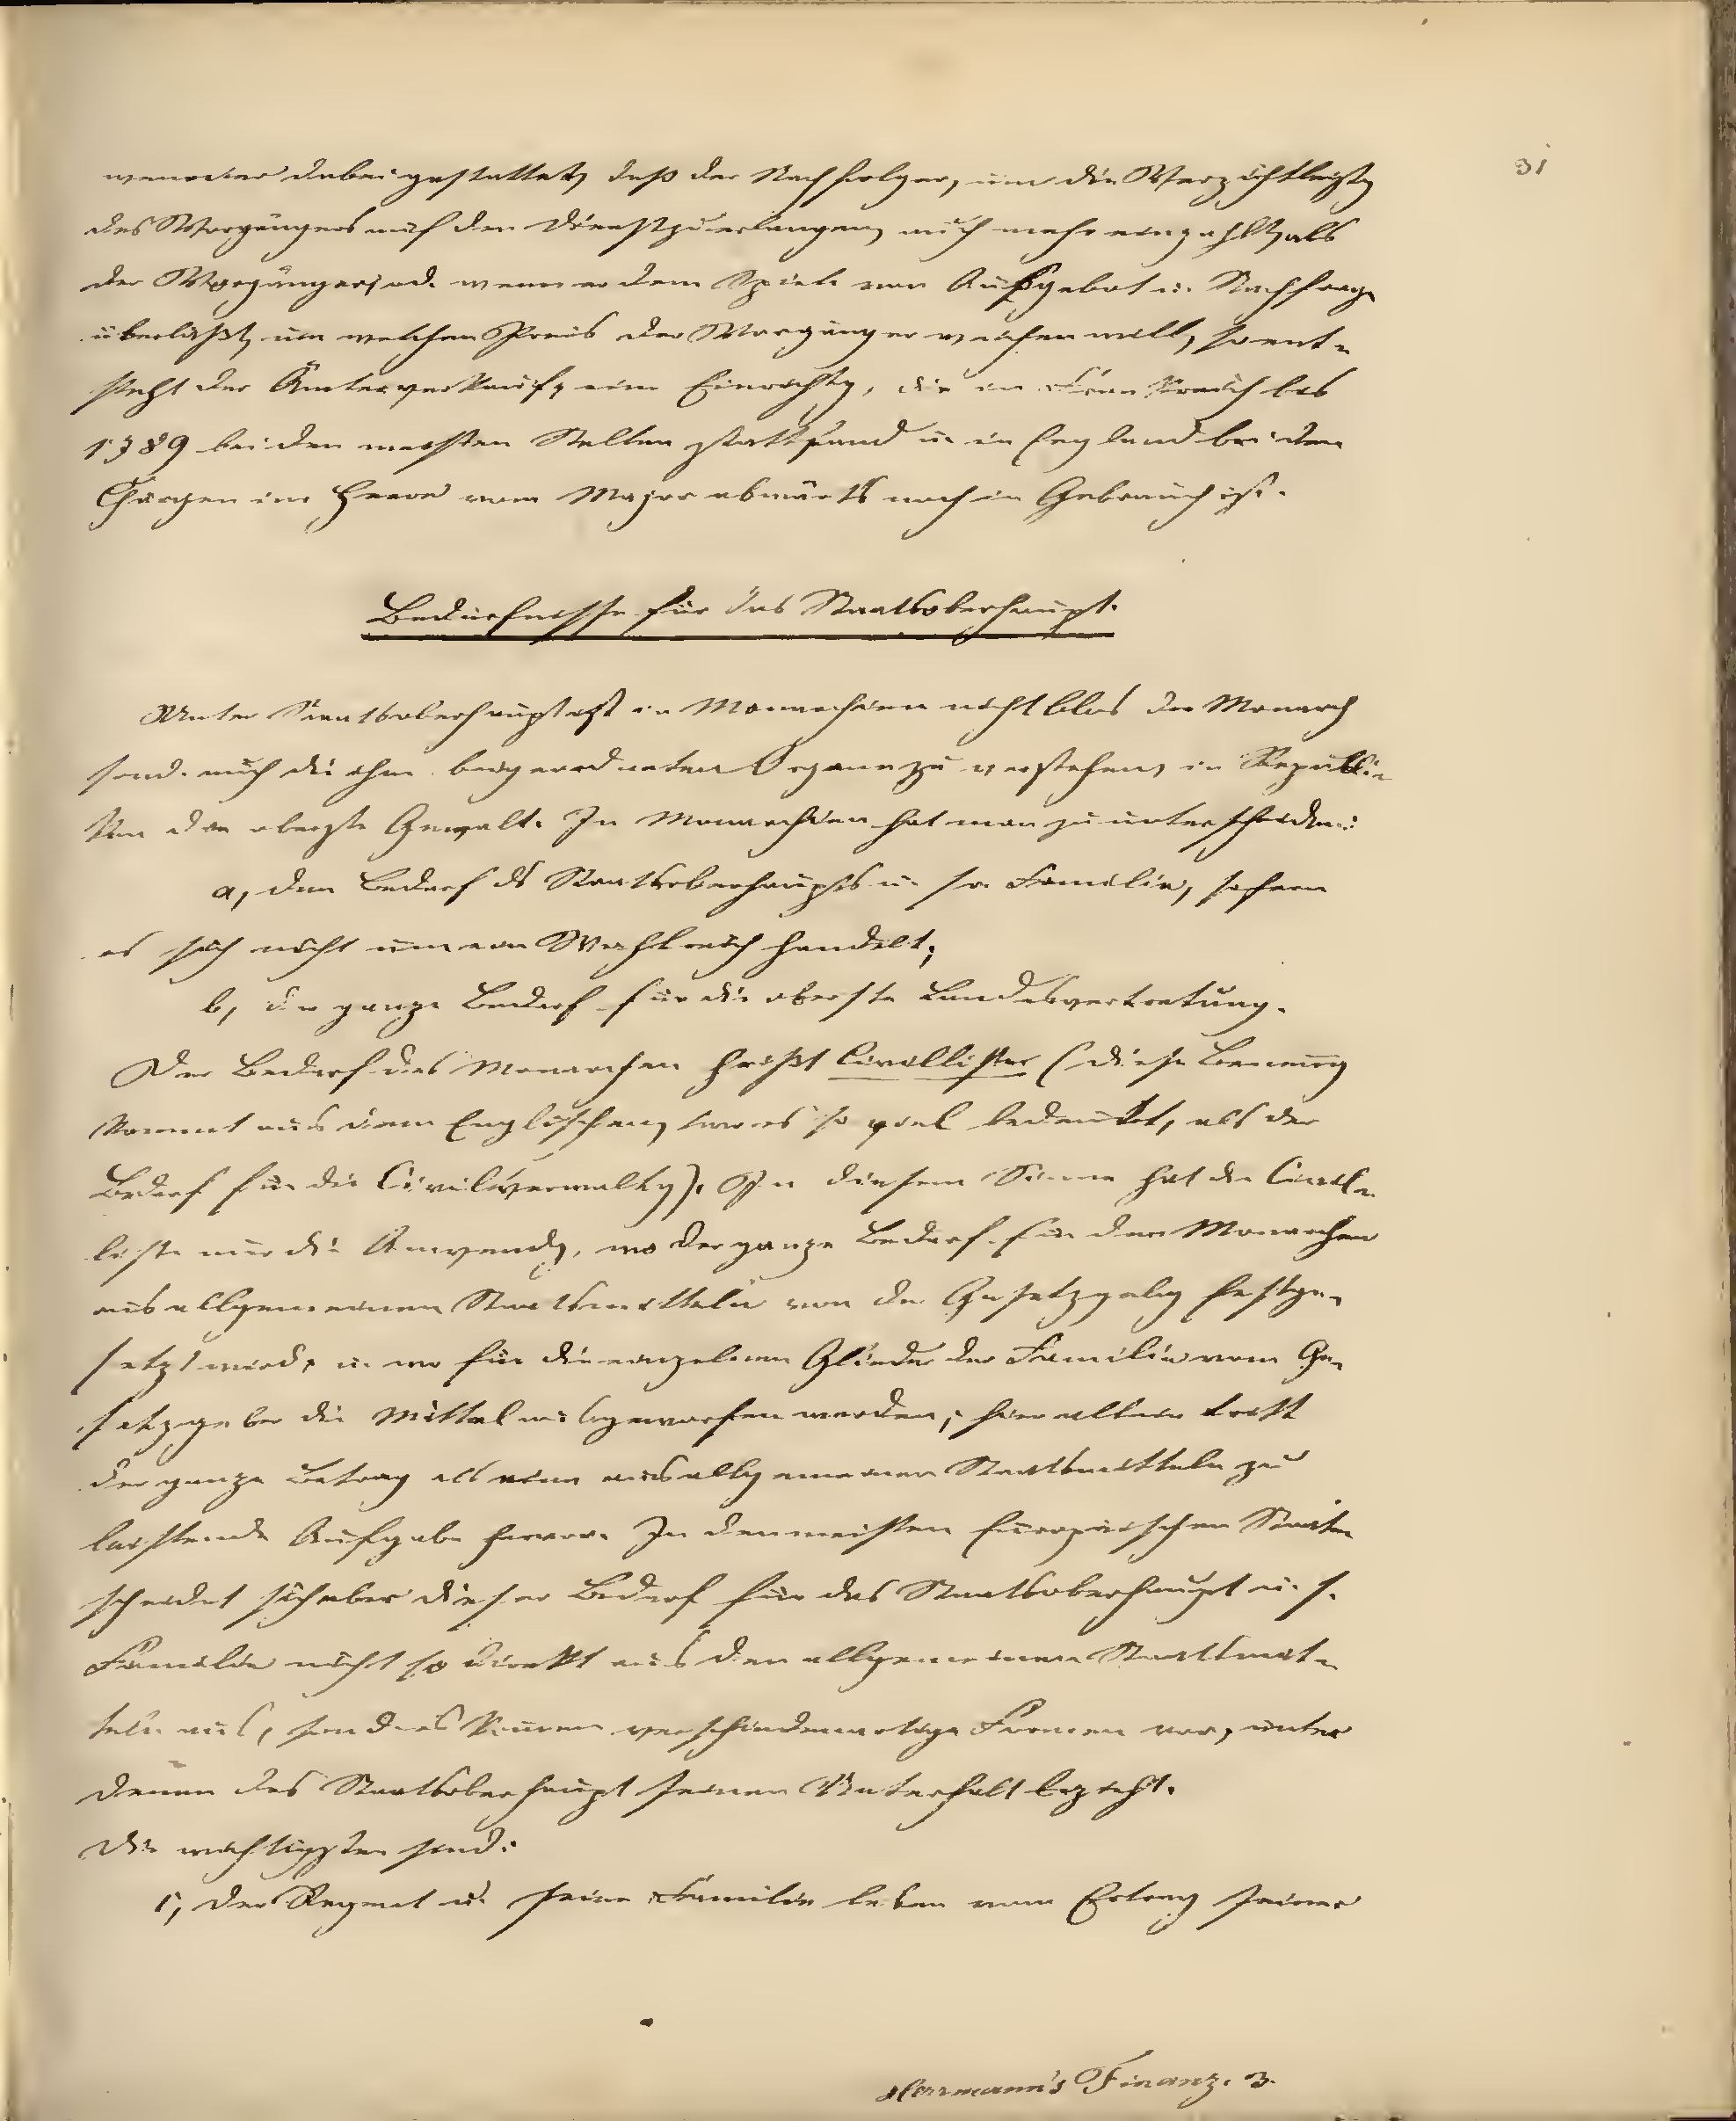 31
wenn er dabei gestattet, daß der Nachfolger, um die Verzichtleistg
des Vorgängers auf den Dienst zu erlangen, auch mehr einzahlt, als
der Vorgänger, od. wenn er dem Spiele von Aufgebot u. Nachfrage
überläßt, um welchen Preis der Vorgänger weichen will, so ent-
steht der Ämterverkauf, eine Einrichtg, die in Frankreich bis
1789 bei den meisten Stellen stattfand u. in England bei den
Chargen im Heere vom Major abwärts noch in Gebrauch ist.
Bedürfnisse für das Staatsoberhaupt.
Unter Staatsoberhaupt ist in Monarchieen nicht blos der Monarch
sond. auch die ihm beigeordneten Organe zu verstehen, in Republi-
ken die oberste Gewalt. In Monarchieen hat man zu unterscheiden:
a, den Bedarf ds Staatsoberhaupts u. sr Familie, sofern
es sich nicht um ein Wahlreich handelt;
b, der ganze Bedarf für die oberste Landesvertretung.
Der Bedarf des Monarchen heißt Civilliste (diese Benenng
kommt aus dem Englischen, wo es so viel bedeutet, als der
Bedarf für die Civilverwaltg). In diesem Sinne hat die Civil-
liste nur die Anwendg, wo der ganze Bedarf für den Monarchen
aus allgemeinen Staatsmitteln von der Gesetzgebg festge-
setzt wird, u. wo für die einzelnen Glieder der Familie vom Ge-
setzgeber die Mittel ausgeworfen werden; hier allein tritt
der ganze Betrag als eine aus allgemeinen Staatsmitteln zu
leistende Aufgabe hervor. In den meisten europäischen Staaten
scheidet sich aber dieser Bedarf für das Staatsoberhaupt u. s.
Familie nicht so direkt aus den allgemeinen Staatsmit-
teln aus, sond. es kommen verschiedenartige Formen vor, unter
denen das Staatsoberhaupt seinen Unterhalt bezieht.
Die wichtigsten sind:
1, Der Regent u. seine Familie leben vom Ertrag seines
Herrmann's Finanz. 3.